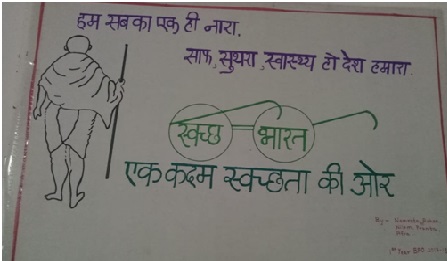 हम सब का एक ही नारा,
साफ, सुथरा, स्वास्थ्य हो देश हमारा
स्वच्छ भारत
एक कदम स्वच्छता की ओर
By:-
1st Year